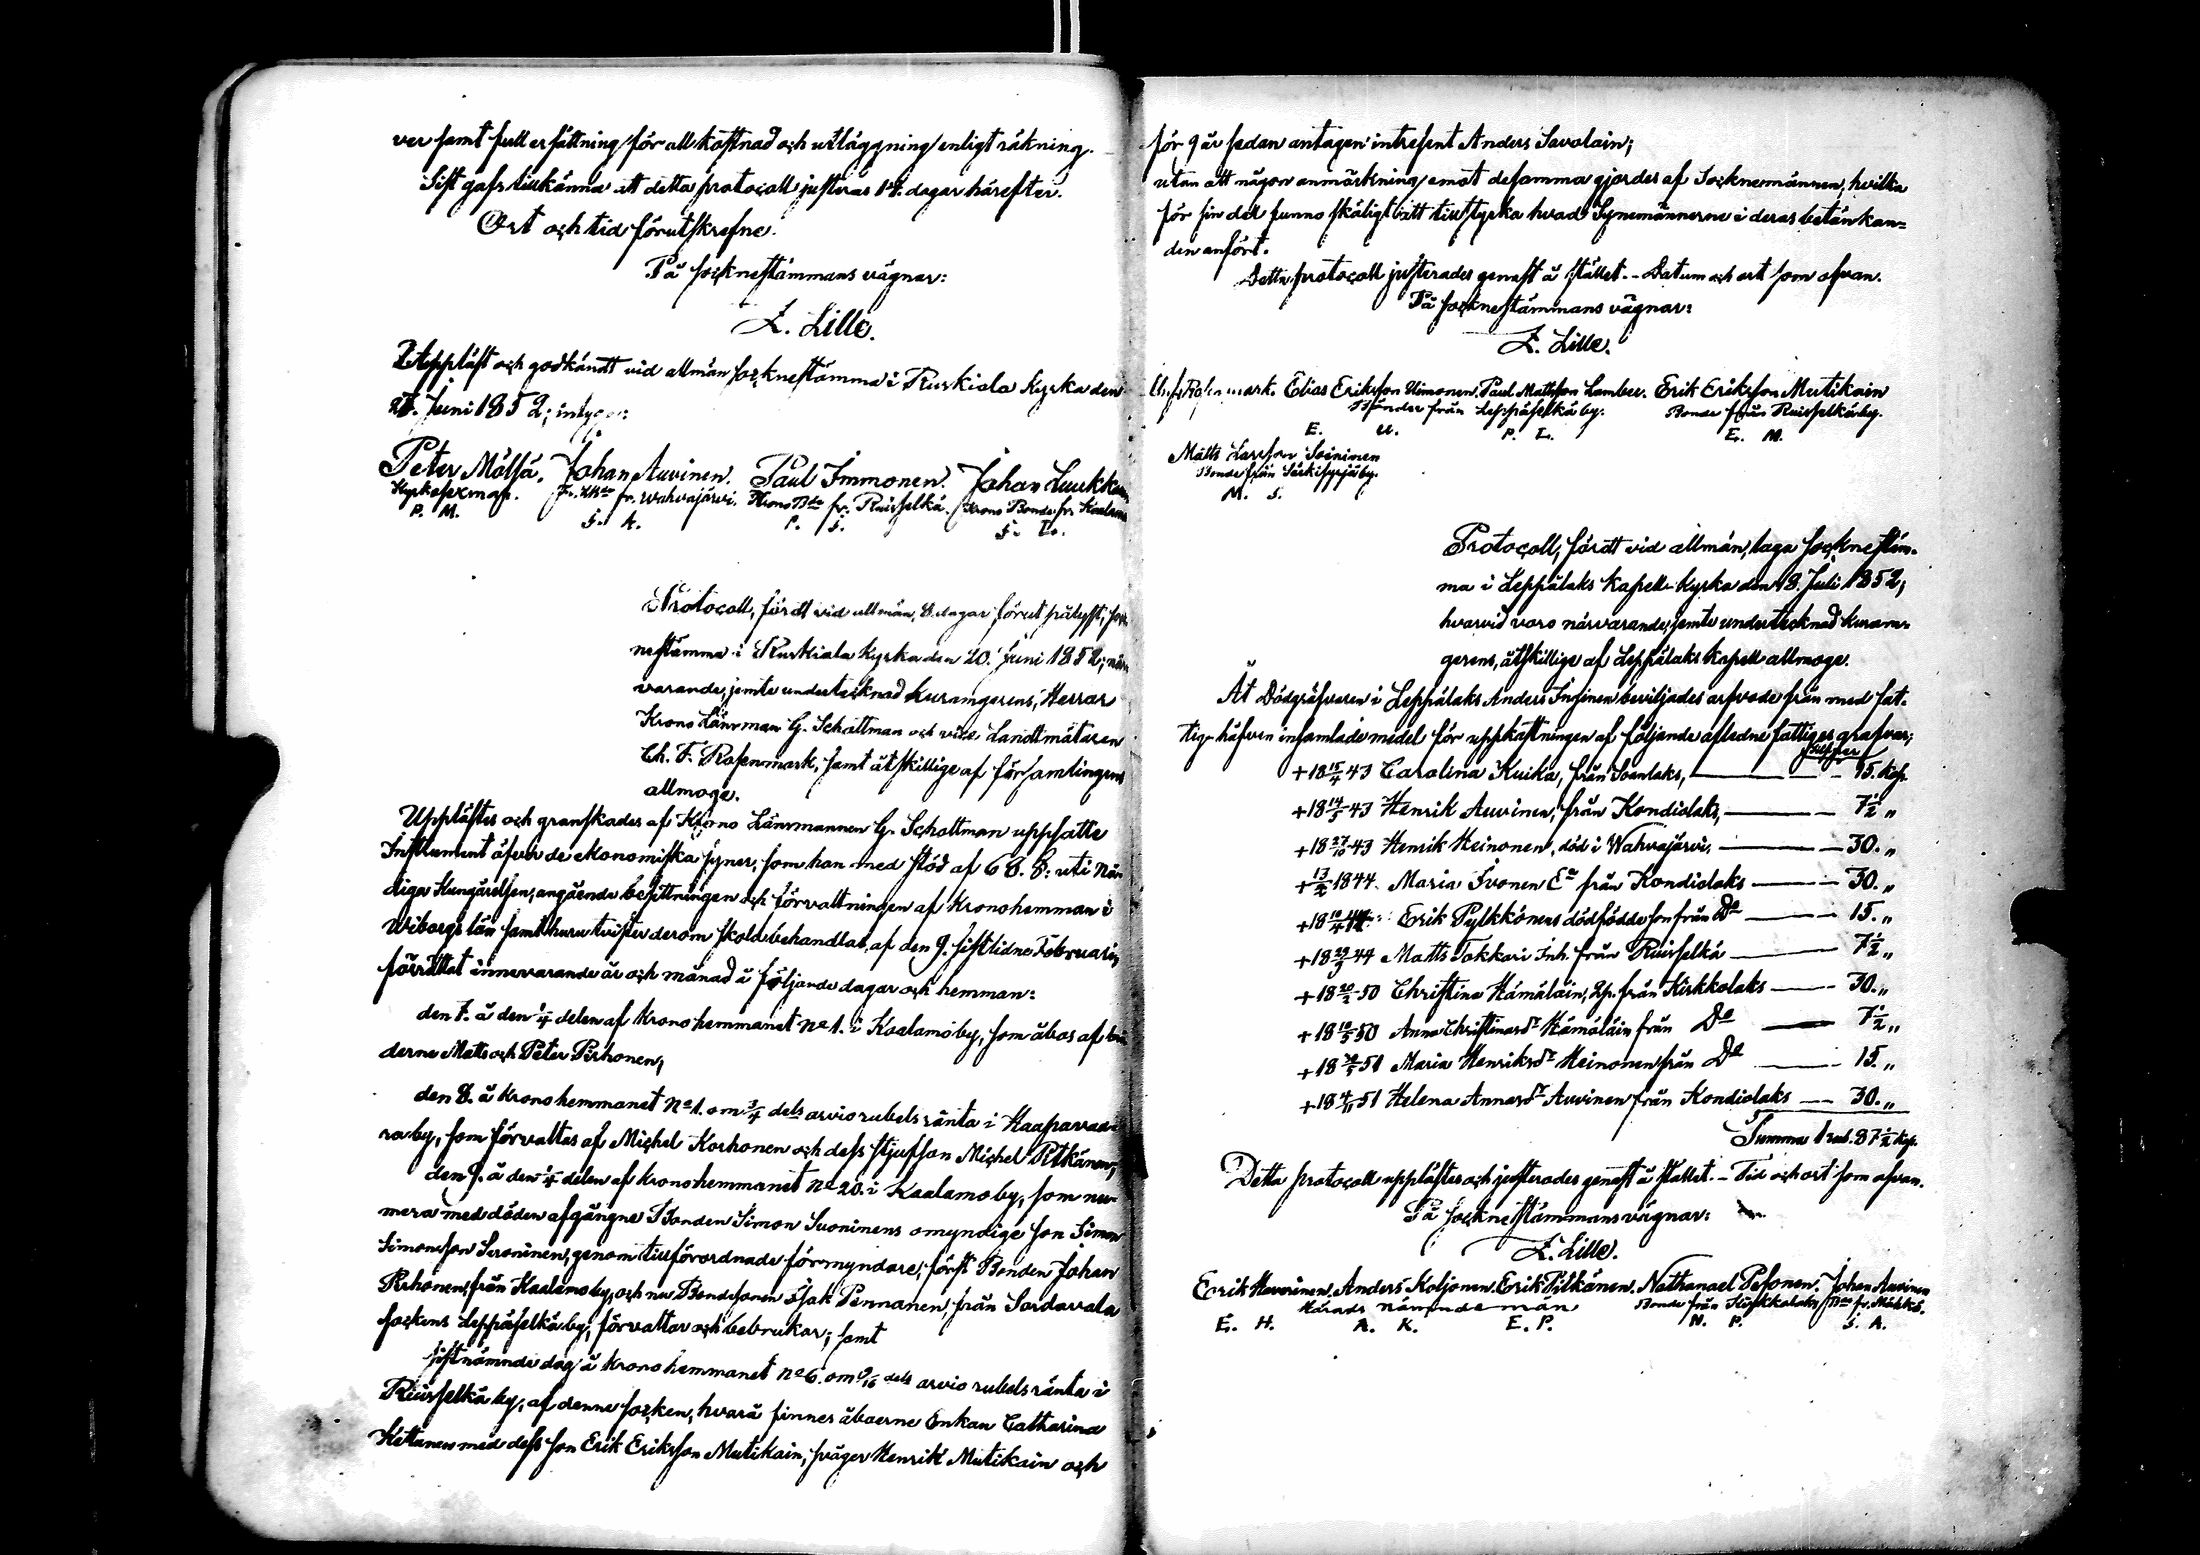 ver samt full ersättning för all kostnad och utläggning enligt räkning.
Sist gafs tillkänna att detta protocoll justeras 14. dagar härefter.
Ort och tid förutskrefne.
På socknestämmans vägnar:
Z. Lille.
Uppläst och godkändt vid allmän sockne stämma i Ruskiala Kyrka den
Juni 1852; intyga:
Peter Mölsä. Johan Auvinen. Paul Immonen. Johan Luukkon
Kyrkosexman. fr. Wahvajärvi. Krono Bde fr. Ruisselkä. Krono Bonde fr. Kaalamo
P. M. J. A. P. I. J. L.
Protocoll, fördt vid allmän, 8. dagar förut pålyst, sock
nestämma i Ruskiala Kyrka den 20. Juni 1852; när
varande, jemte undertecknad Kuramgerens, Herrar
Krono Länsman G. Schottman och vice Landtmätaren
Ch. F. Rosenmark, samt åtskillige af församlingens
allmoge.
Upplästes och granskades af Krono Länsmannen G. Schottman uppsatte
Instrument öfver de ekonomiska syner, som han med stöd af 68. §: uti Nå-
diga Kungörelsen, angående besittningen och förvaltningen af Kronohemman i
Wiborgs län samt huru tvister derom skola behandlas, af den 9. sistlidne Februarii,
förrättat innevarande år och månad å följande dagar och hemman:
den 7. å den 1/4 delen af Kronohemmanet No 1. i Kaalamo by, som åbos af bön
derne Matts och Peter Pirhonen,
den 8. å Kronohemmanet No 1. om 3/4 dels arviorubels ränta i Haapavaa-
ra by, som förvaltas af Michel Korhonen och dess stjufson Michel Pitkänen,
den 9. å den 1/4 delen af Kronohemmanet No 20. i Kaalamo by, som nu-
mera med döden afgångne Bonden Simon Suoninens omyndige son Simon
Simonsson Suoninen, genom tillförordnade förmyndare, först Bonden Johan
Pirhonen, från Kaalamo by, och nu Bondesonen Isak Pennanen, från Sordavala
sockens Leppäselkä by, förvaltar och bebrukar; samt
sistnämnde dag å Kronohemmanet No 6. om 9/16 dels arvio rubels ränta i
Ruisselkä by, af denne socken, hvarå finnes åboerne Enkan Catharina
Kettunen med dess son Erik Eriksson Mutikain, svåger Henrik Mutikain och
för 9 år sedan antagen intressent Anders Savolain;
utan att någon anmärkning emot desamma gjordes af Socknemännen, hvilka
för sin del funno skäligt att tillstyrka hvad Synemännerne i deras betänkan-
den anfört.
Detta protocoll justerades genast å stället. – Datum och ort som ofvan.
På sockne stämmans vägnar:
Z. Lille.
Rosenmark. Elias Eriksson Uimonen. Paul Mattsson Lamber. Erik Eriksson Mutikain
Bönder från Leppäselkä by. Bonde från Ruisselkä by.
E. U. P. L. E. M.
Matts Larsson Soininen
Bonde från Särkisyrjä by.
M. S.
Protocoll, fördt vid allmän, laga sockne stäm-
ma i Leppälaks Kapell-Kyrka den 18. Juli 1852;
hvarvid voro närvarande, jemte undertecknad Kuram-
gerens, åtskillige af Leppälaks Kapell allmoge.
Åt Dödgräfvaren i Leppälaks Anders Inginen beviljades arfvode från med fat-
tig-håfven insamlade medel för uppkastningen af följande afledne fattiges grafvar;
Silfver
+ 18 15/4 43 Carolina Kuika, från Soanlaks, — 15. kop.
+ 18 14/5 43 Henrik Auvinen, från Kondiolaks, — 7 1/2 „
+ 18 27/10 43 Henrik Heinonen, död i Wahvajärvi, — 30. „
+ 13/2 1844. Maria Ivonen Ea från Kondiolaks — 30. „
+ 18 10/4 44 Erik Pylkkönens dödfödde son från Do — 15. „
+ 18 29/9 44 Matts Takkari Inh. från Ruisselkä — 7 1/2 „
+ 18 20/2 50 Christina Hämäläin, Pp. från Kirkkolaks — 30. „
+ 18 10/5 50 Anna Christinasdr Hämäläin från Do — 7 1/2 „
+ 18 30/5 51 Maria Henriksdr Heinonen från Do — 15. „
+ 18 4/11 51 Helena Annasdr Auvinen från Kondiolaks — 30. „
Summa 1 rub. 87 1/2 kop.
Detta protocoll upplästes och justerades genast å stället. – Tid och ort som ofvan.
På sockne stämmans vägnar:
Z. Lille.
Erik Haverinen. Anders Koljonen. Erik Pitkänen. Nathanael Pesonen. Johan Auvinen
Härads nämndemän Bonde från Kirkkolaks Bde fr.
E. H. A. K. E. P. N. P. J. A.